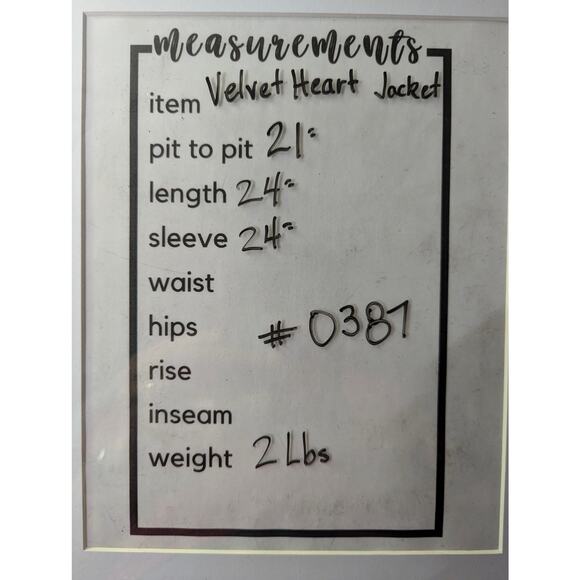 measurements
item Velvet Heart Jacket
pit to pit 21"
length 24"
sleeve 24"
waist
hips # 0387
rise
inseam
weight 2 Lbs